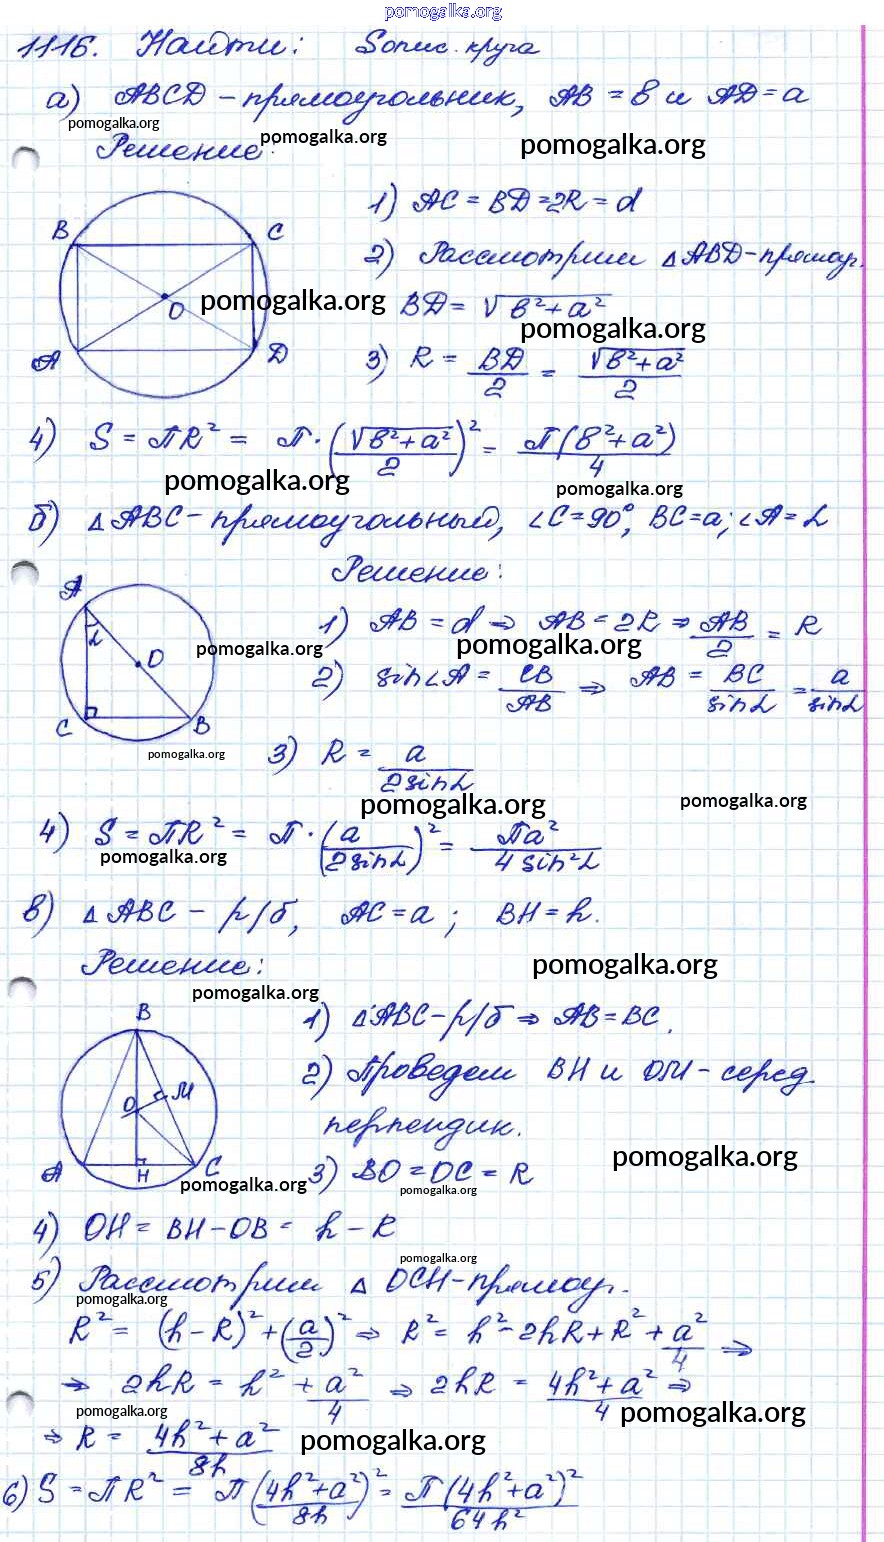 pomogalka.org
1116. Найти: Sопис. круга
а) ABCD – прямоугольник, AB = в и AD = a
pomogalka.org
Решение:
pomogalka.org
pomogalka.org
1) AC = BD = 2R = d
B C
2) Рассмотрим △ABD – прямоуг.
O pomogalka.org
BD = √в²+a²
pomogalka.org
A D
3) R = BD/2 = √в²+a²/2
4) S = πR² = π·(√в²+a²/2)² = π(в²+a²)/4
pomogalka.org
pomogalka.org
б) △ABC – прямоугольный, ∠C = 90°, BC = a; ∠A = α
Решение:
A
1) AB = d ⇒ AB = 2R ⇒ AB/2 = R
α O
pomogalka.org
pomogalka.org
2) sin∠A = CB/AB ⇒ AB = BC/sinα = a/sinα
C B
pomogalka.org
3) R = a/2sinα
pomogalka.org
pomogalka.org
4) S = πR² = π·(a/2sinα)² = πa²/4sin²α
pomogalka.org
в) △ABC – р/б, AC = a; BH = h.
Решение:
pomogalka.org
pomogalka.org
B
1) △ABC – р/б ⇒ AB = BC.
2) Проведем BH и OM – серед.
O M
перпендик.
pomogalka.org
A H C
pomogalka.org
3) BO = OC = R
pomogalka.org
4) OH = BH – OB = h – R
pomogalka.org
5) Рассмотрим △ OCH – прямоуг.
pomogalka.org
R² = (h – R)² + (a/2)² ⇒ R² = h² – 2hR + R² + a²/4 ⇒
⇒ 2hR = h² + a²/4 ⇒ 2hR = 4h² + a²/4 ⇒
pomogalka.org
pomogalka.org
⇒ R = 4h² + a²/8h
pomogalka.org
6) S = πR² = π(4h²+a²/8h)² = π(4h²+a²)²/64h²